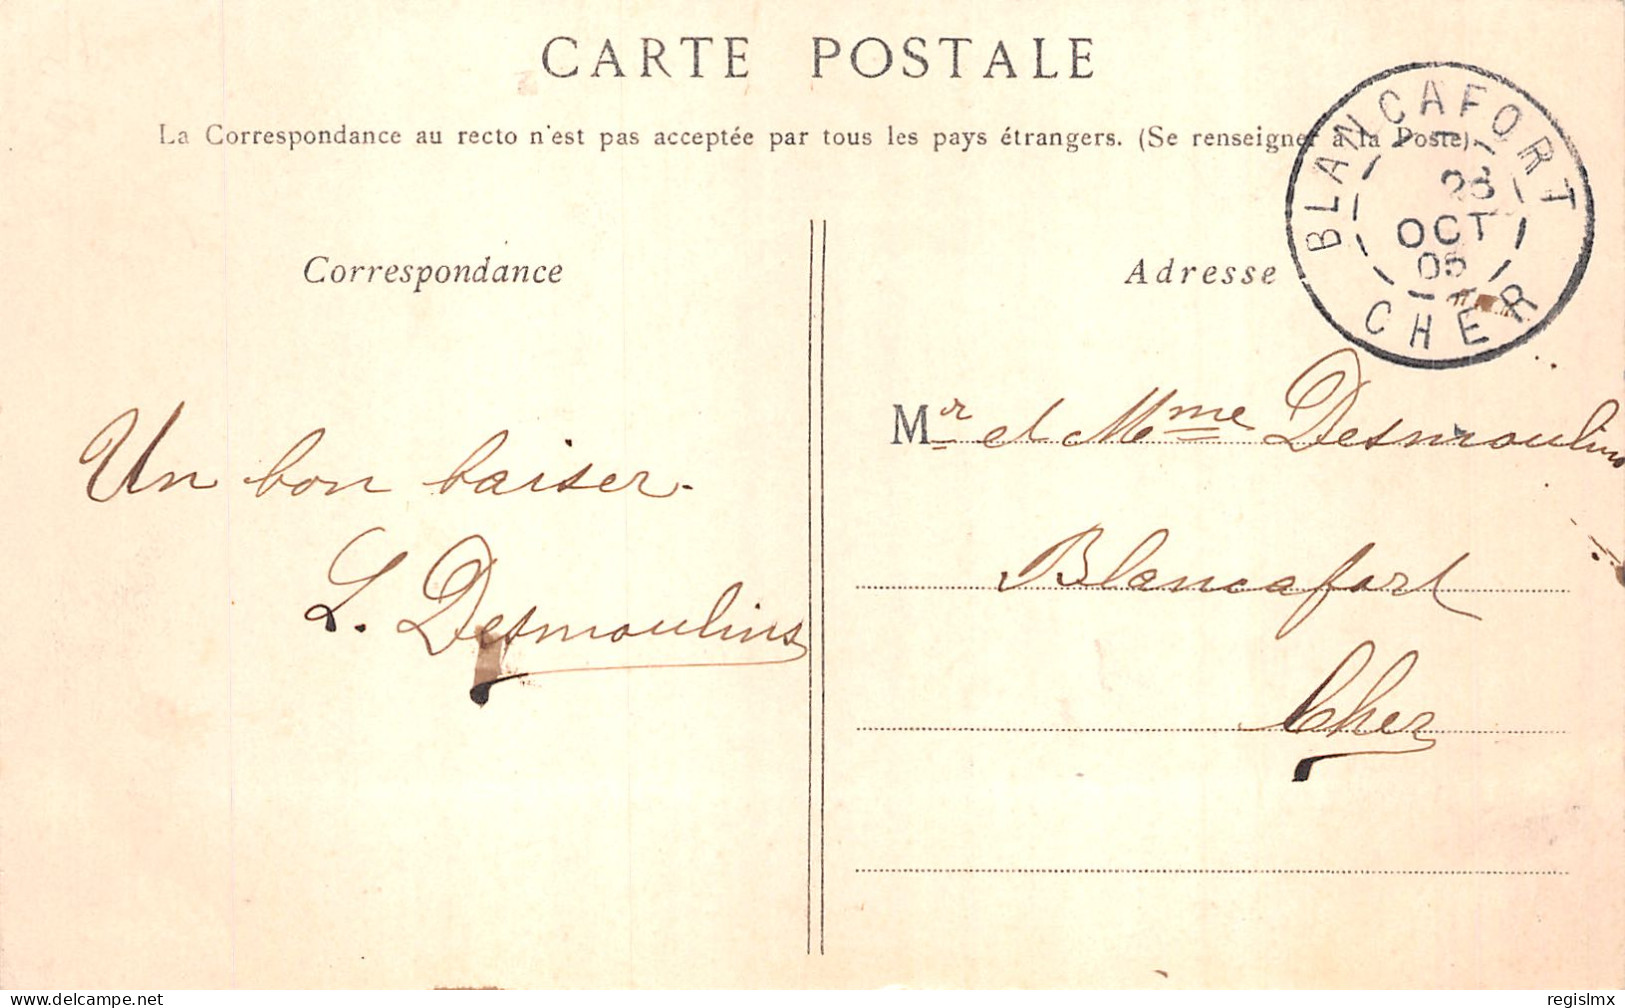 CARTE POSTALE
La Correspondance au recto n'est pas acceptée par tous les pays étrangers. (Se renseigner à la Poste).
BLANCAFORT
OCT
05
CHER
Correspondance
Adresse
Un bon baiser.
L. Desmoulins
Mr et Mme Desmoulins
Blancafort
Cher
www.delcampe.net
regislmx